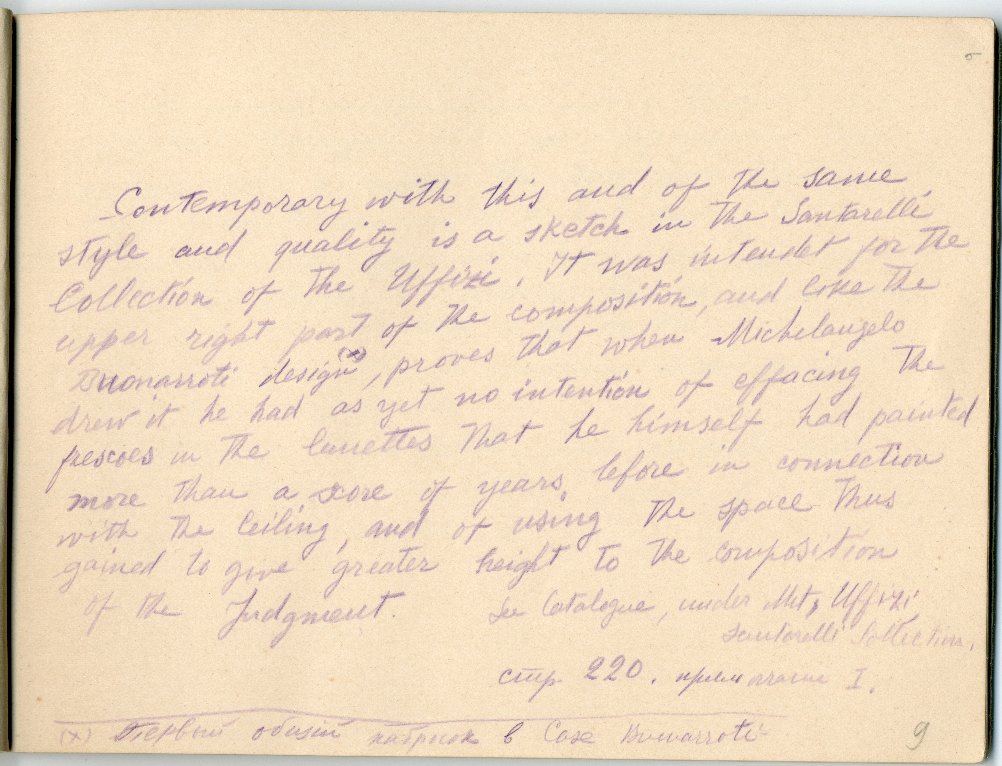 5
Contemporary with this and of the same
style and quality is a sketch in the Santarelli
Collection of the Uffizi. It was intendet for the
upper right part of the composition, and like the
Buonarroti design (x), proves that when Michelangelo
drew it he had as yet no intention of effacing the
frescoes in the lunettes that he himself had painted
more than a score of years before in connection
with the Ceiling, and of using the space thus
gained to give greater height to the composition
of the Judgment. See Catalogue, under Uffizi
Santarelli Collection.
стр 220. примечание I.
(x) Первый общий набросок в Casa Buonarroti
9